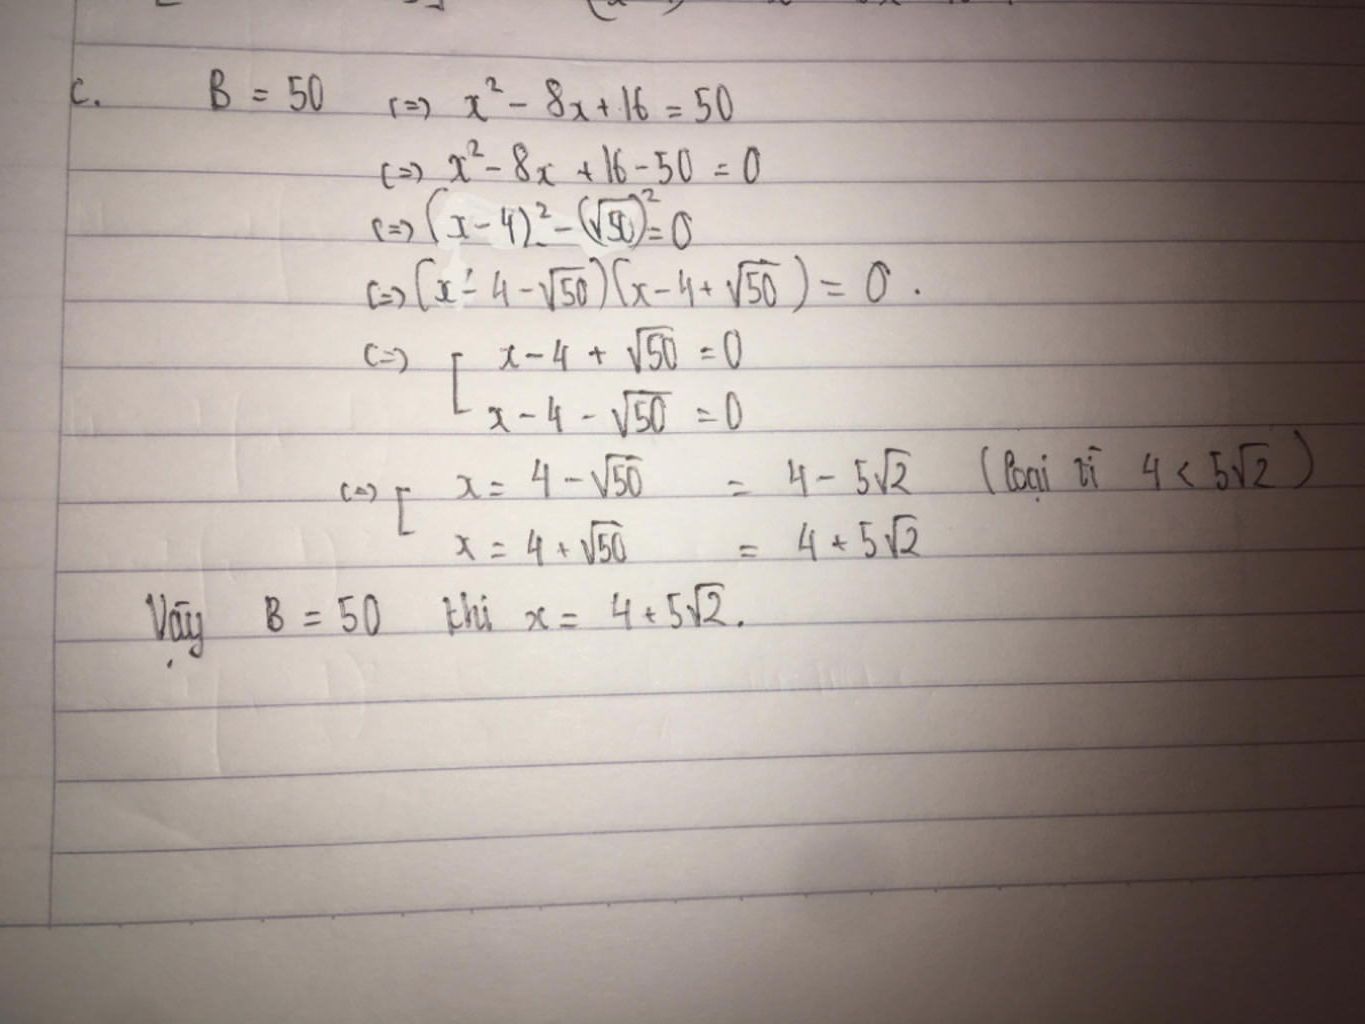 c. B = 50 (=) x² - 8x + 16 = 50
(=) x² - 8x + 16 - 50 = 0
(=) (x - 4)² - (√50)² = 0
(=) (x - 4 - √50)(x - 4 + √50) = 0.
(=) [ x - 4 + √50 = 0
x - 4 - √50 = 0
(=) [ x = 4 - √50 = 4 - 5√2 (loại vì 4 < 5√2)
x = 4 + √50 = 4 + 5√2
Vậy B = 50 khi x = 4 + 5√2.